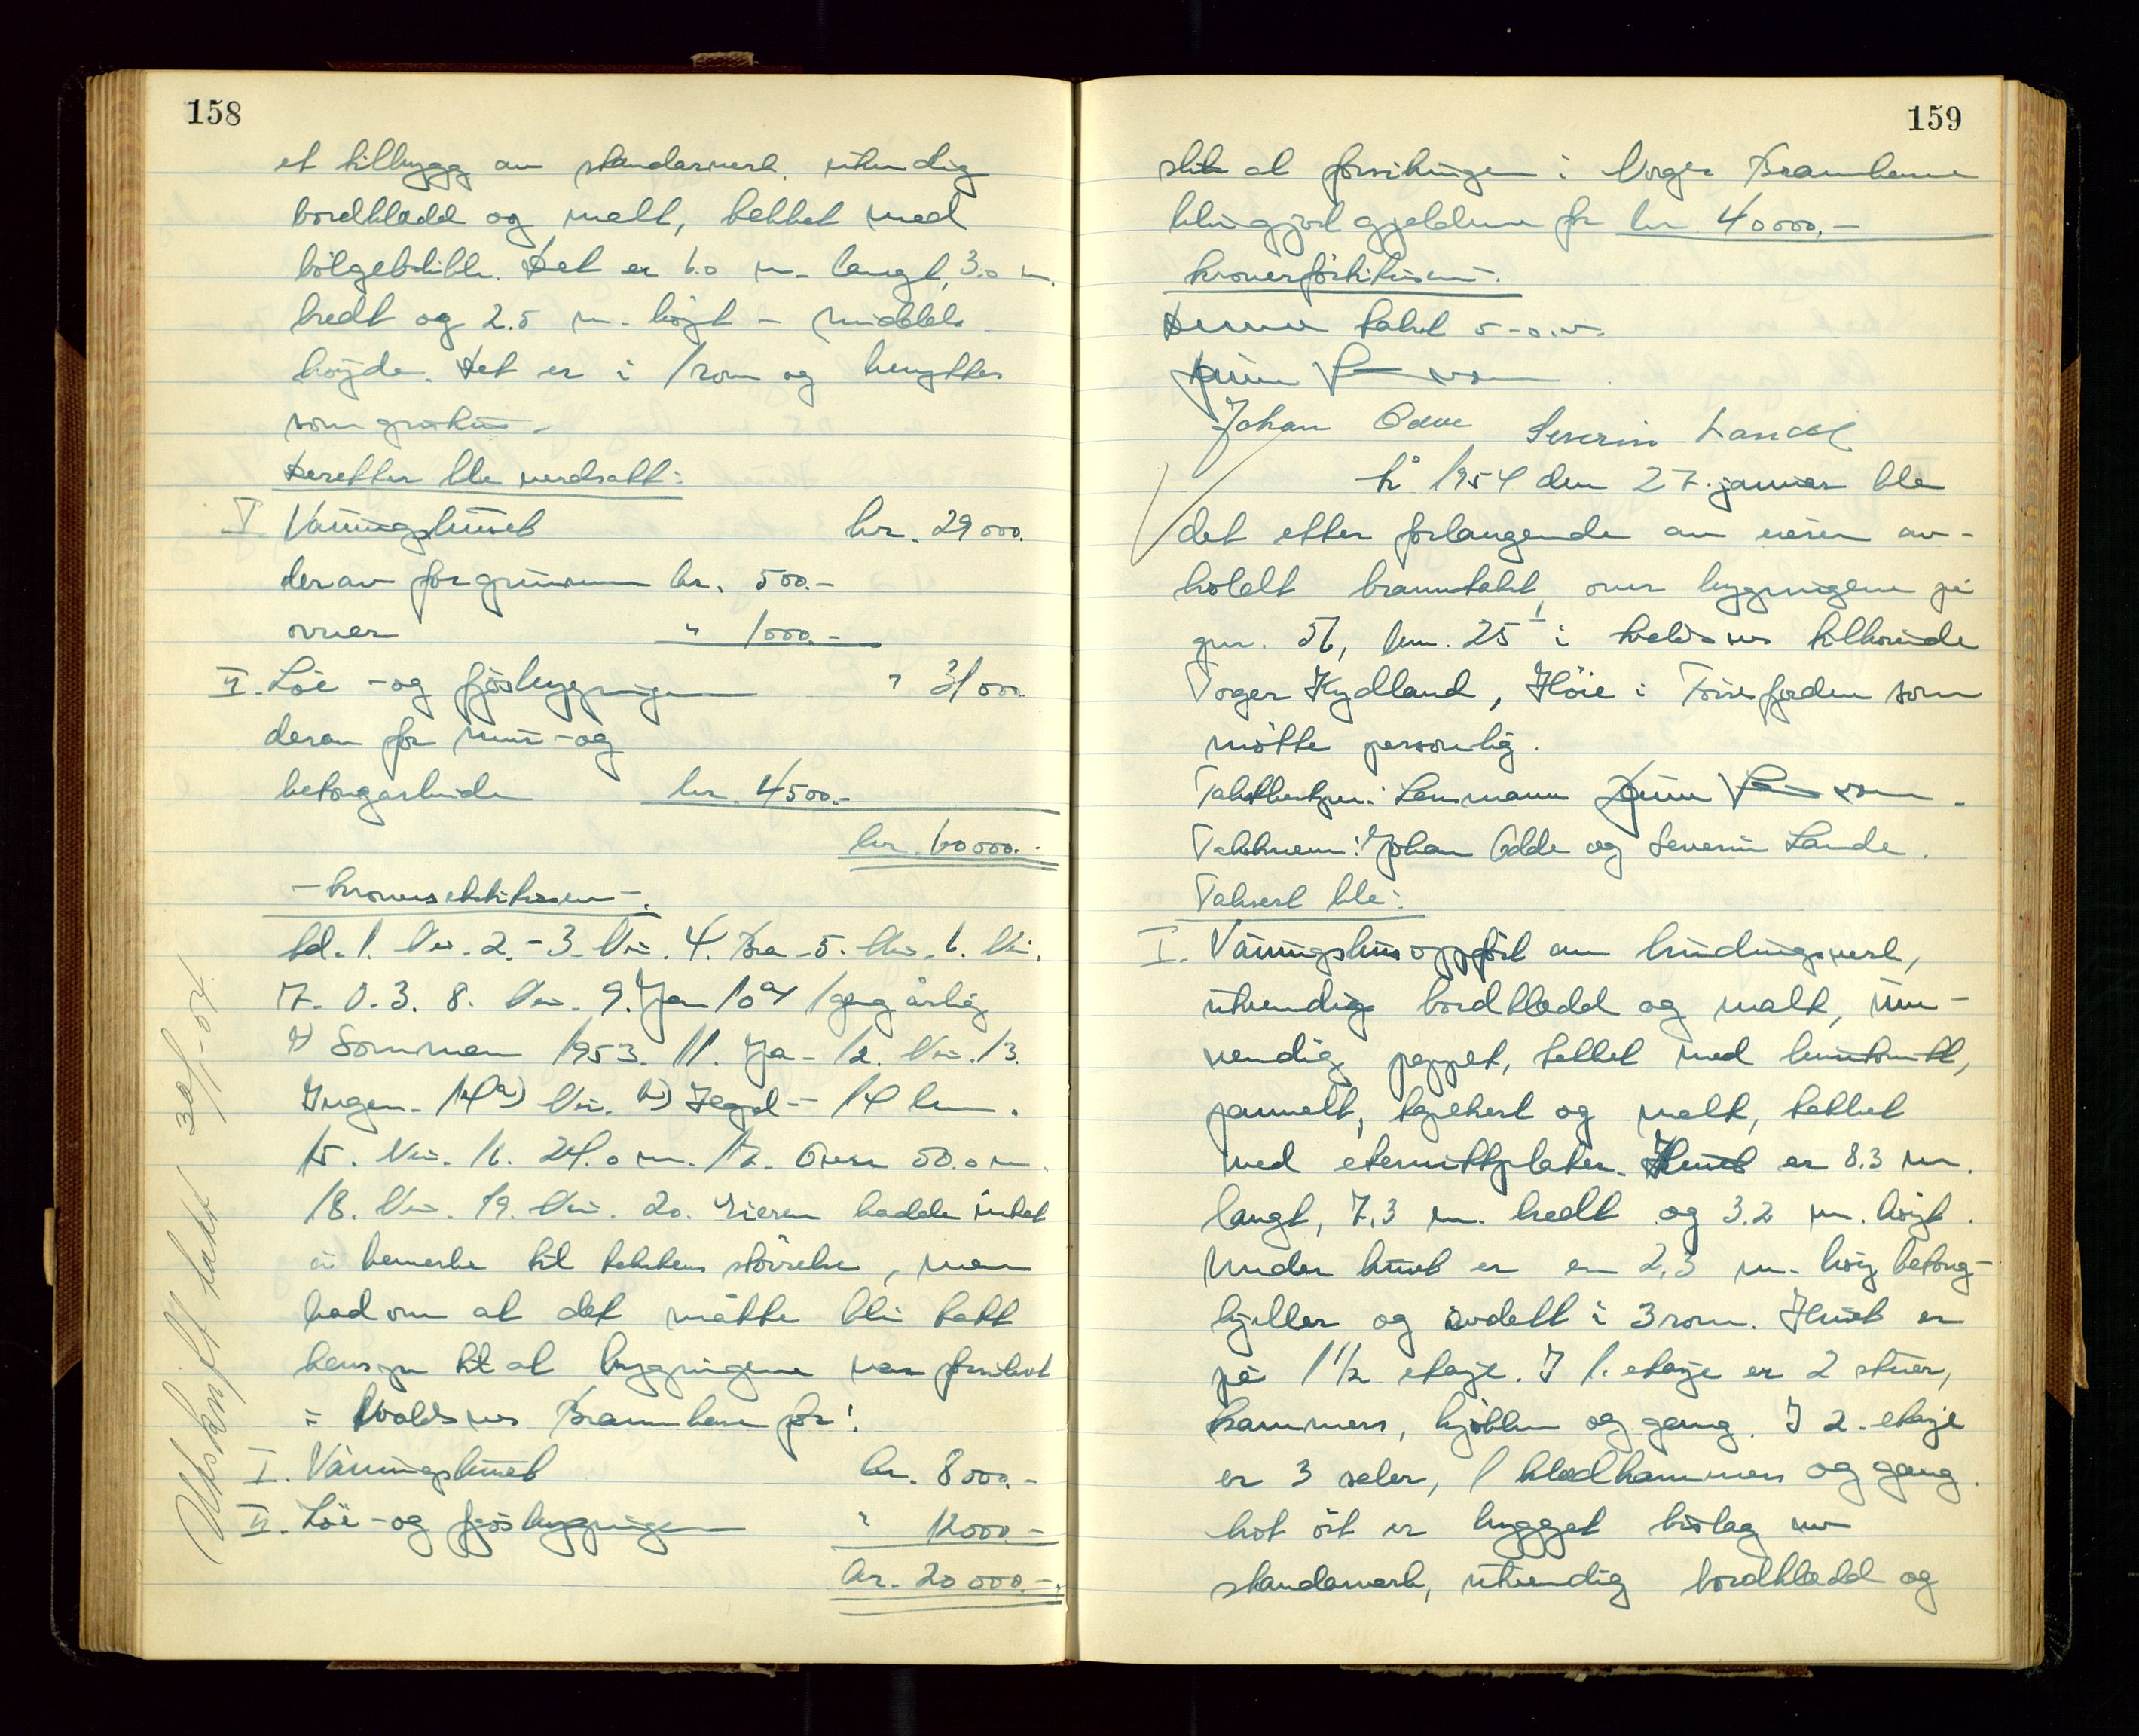 158
et tilbygg av standarverk utvendig
bordkledd og malt, tekket med
bølgeblikk. Det er 6.0 m. langt, 3.0 m.
bredt og 2.5 m. høyt - middels
høyde. Det er i 1 rom og benyttes
som grishus.
Deretter ble verdsatt:
I Våningshuset kr. 29000.
derav for grunnmur kr. 500.-
ovner " 1000.-
II. Löe - og fjøsbygningen " 31000.
derav for mur - og
betongarbeide kr. 4500.-
kr. 60000.-
- kronersekstitusen -.
1. Nei. 2. - 3. Nei. 4. Bra - 5. Nei. 6. Nei.
7. 0. 3. 8. Nei. 9. Ja 10 a) 1 gang årlig
b) Sommeren 1953. 11. Ja - 12. Nei. 13.
Ingen. 14 a) Nei. b) 14 km.
15. Nei. 16. 24.0 m. 17. Over 50.0 m.
18. Nei. 19. Nei. 20. Eieren hadde intet
å bemerke til takstens størrelse, men
bad om at det måtte bli tatt
hensyn til at bygningene var forsikret
i Kvalds nes Brannkasse for:
I. Våningshuset kr. 8000.-
II. Löe - og fjøsbygningen " 12000.-
kr. 20000.-
Utskrift takst 30/1-54.
159
slik at forsikringen i Norges Brannkasse
blir gjort gjeldene for kr. 40000,-
kronerførtitusen -.
Denne takst o.s.v.

Johan Odde Severin Lande
År 1954 den 27. januar ble
det etter forlangende av eieren av-
holdt branntakst over bygningene på
gnr. 56, bnr. 25 i Kvalds nes tilhørende
Toger Kydland, Höie i Førresfjorden som
møtte personlig.
Takstbestyrer: Lensmann
Takstmenn: Johan Odde og Severin Lande.
Taksert ble:
I. Våningshus oppført av bindingsverk,
utvendig bordkledd og malt, inn-
vendig pappet, tekket med
pannelt, tapetsert og malt, tekket
med eternittplater. Huset er 8.3 m.
langt, 7.3 m. bredt og 3.2 m. høyt.
Under huset er en 2,3 m. høy betong-
kjeller og avdelt i 3 rom. Huset er
på 1 1/2 etasje. I 1. etasje er 2 stuer,
kammers, kjøkken og gang. I 2. etasje
er 3 saler, 1 kledkammers og gang.
Mot øst er bygget bislag av
standarverk, utvendig bordkledd og